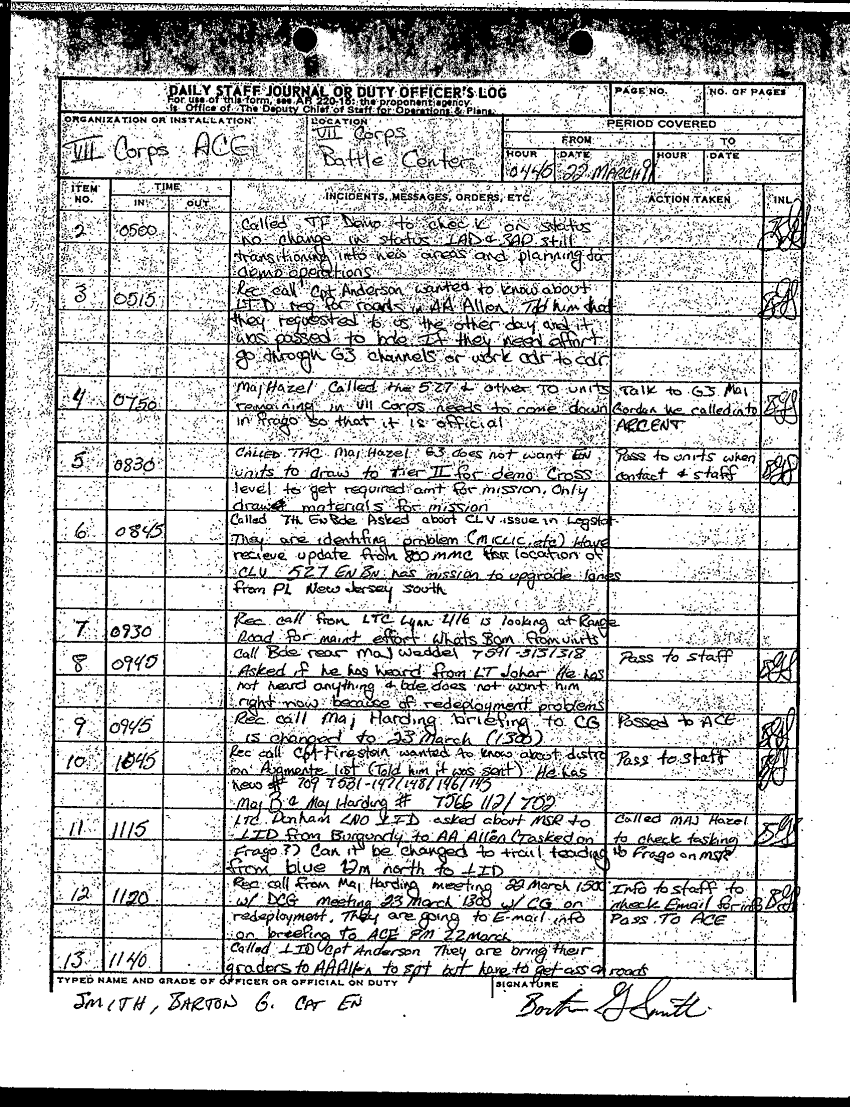 DAILY STAFF JOURNAL OR DUTY OFFICER'S LOG
For use of this form, see AR 220-15; the proponent agency
is Office of The Deputy Chief of Staff for Operations & Plans.
PAGE NO.
NO. OF PAGES
ORGANIZATION OR INSTALLATION
VII Corps ACE
LOCATION
VII Corps
Battle Center
PERIOD COVERED
FROM
TO
HOUR
DATE
HOUR
DATE
0445
22 MARCH 91
ITEM NO.
TIME
IN
OUT
INCIDENTS, MESSAGES, ORDERS, ETC.
ACTION TAKEN
INL
2 0500
Called TF Demo to check on status
no change in status 1AD & 3AD still
transitioning into new areas and planning for
demo operations
3 0515
Rec call Cpt Anderson wanted to know about
1ID req for roads in AA Allen. Told him that
they requested to us the other day and it
was passed to bde. If they need effort
go through G3 channels or work cdr to cdr
4 0750
Maj Hazel Called the 527 & other TO units
remaining in VII Corps needs to come down
in Frago so that it is official
Talk to G3 Maj
Gordan he called into
ARCENT
5 0830
CALLED TAC Maj Hazel G3 does not want EN
units to draw to tier II for demo Cross
level to get required amt for mission. Only
draw materials for mission
Pass to units when
contact & staff
6 0845
Called 7th En Bde Asked about CLV issue in Logstat
They are identifing problem (MICLIC, etc) Have
recieve update from 800 mmc location of
CLV 527 EN BN has mission to upgrade lanes
from PL New Jersey south
7 0930
Rec call from LTC Lynn 416 is looking at Range
Road for maint effort Whats Bom from units
8 0945
call Bde rear Maj Waddel 7591-3131318
Asked if he has heard from LT Johar He has
not heard anything & bde does not want him
right now because of redeployment problems
Pass to staff
9 0945
Rec call Maj Harding briefing to CG
is changed to 23 March (1300)
Passed to ACE
10 1045
Rec call Cpt Firestein wanted to know about distro
on Augmente list (Told him it was sent) He has
new # 709 7521-147/148/146/145
Maj B & Maj Harding # 7566 112/702
Pass to staff
11 1115
LTC Denham LNO 1ID asked about MSR to
1ID from Burgundy to AA Allen (Tasked on
Frago?) Can it be changed to trail leading
from blue 12m north to 1ID
Called MAJ Hazel
to check tasking
to Frago on MSR
12 1120
Rec call from Maj Harding meeting 22 March 1500
w/ DCG meeting 23 March 1300 w/ CG on
redeployment. They are going to E-mail info
on breefing to ACE PM 22 March
Info to staff to
check Email for info
Pass To ACE
13 1140
Called 1ID Cpt Anderson They are bring their
graders to AA Allen to spt but have to get ass on roads
TYPED NAME AND GRADE OF OFFICER OR OFFICIAL ON DUTY
SMITH, BARTON G. CPT EN
SIGNATURE
Barton G Smith